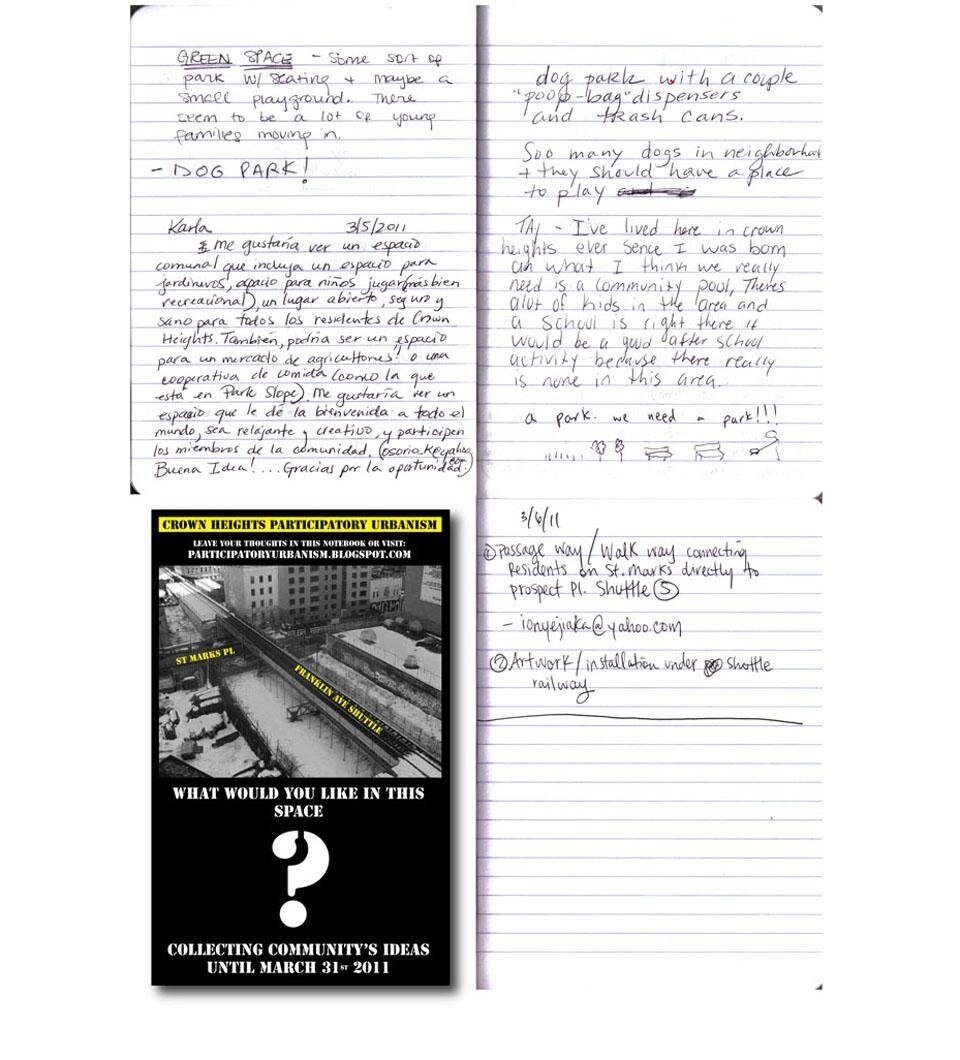 GREEN SPACE - Some sort of
park w/ seating + maybe a
small playground. There
seem to be a lot of young
families moving in.
- DOG PARK!
Karla 3/5/2011
me gustaría ver un espacio
comunal que incluya un espacio para
jardineros, espacio para niños jugar (más bien
recreacional), un lugar abierto, seguro y
sano para todos los residentes de Crown
Heights. También, podría ser un espacio
para un mercado de agricultores! o una
cooperativa de comida (como la que
está en Park Slope). Me gustaría ver un
espacio que le dé la bienvenida a todo el
mundo, sea relajante y creativo, y participen
los miembros de la comunidad.
Buena Idea!....Gracias por la oportunidad.
dog park with a couple
"poop-bag" dispensers
and trash cans.
Soo many dogs in neighborhood
+ they should have a place
to play
TAJ - I've lived here in crown
heights ever sence I was born
an what I think we really
need is a community pool, Theres
alot of kids in the area and
a School is right there it
would be a good after school
activity because there really
is none in this area.
a park. we need a park!!!
CROWN HEIGHTS PARTICIPATORY URBANISM
LEAVE YOUR THOUGHTS IN THIS NOTEBOOK OR VISIT:
PARTICIPATORYURBANISM.BLOGSPOT.COM
ST MARKS PL
FRANKLIN AVE SHUTTLE
WHAT WOULD YOU LIKE IN THIS
SPACE
?
COLLECTING COMMUNITY'S IDEAS
UNTIL MARCH 31ST 2011
3/6/11
① Passage way / Walk way connecting
Residents on St. Marks directly to
prospect Pl. Shuttle Ⓢ
- ionyejiaka@yahoo.com
② Artwork / installation under shuttle
railway